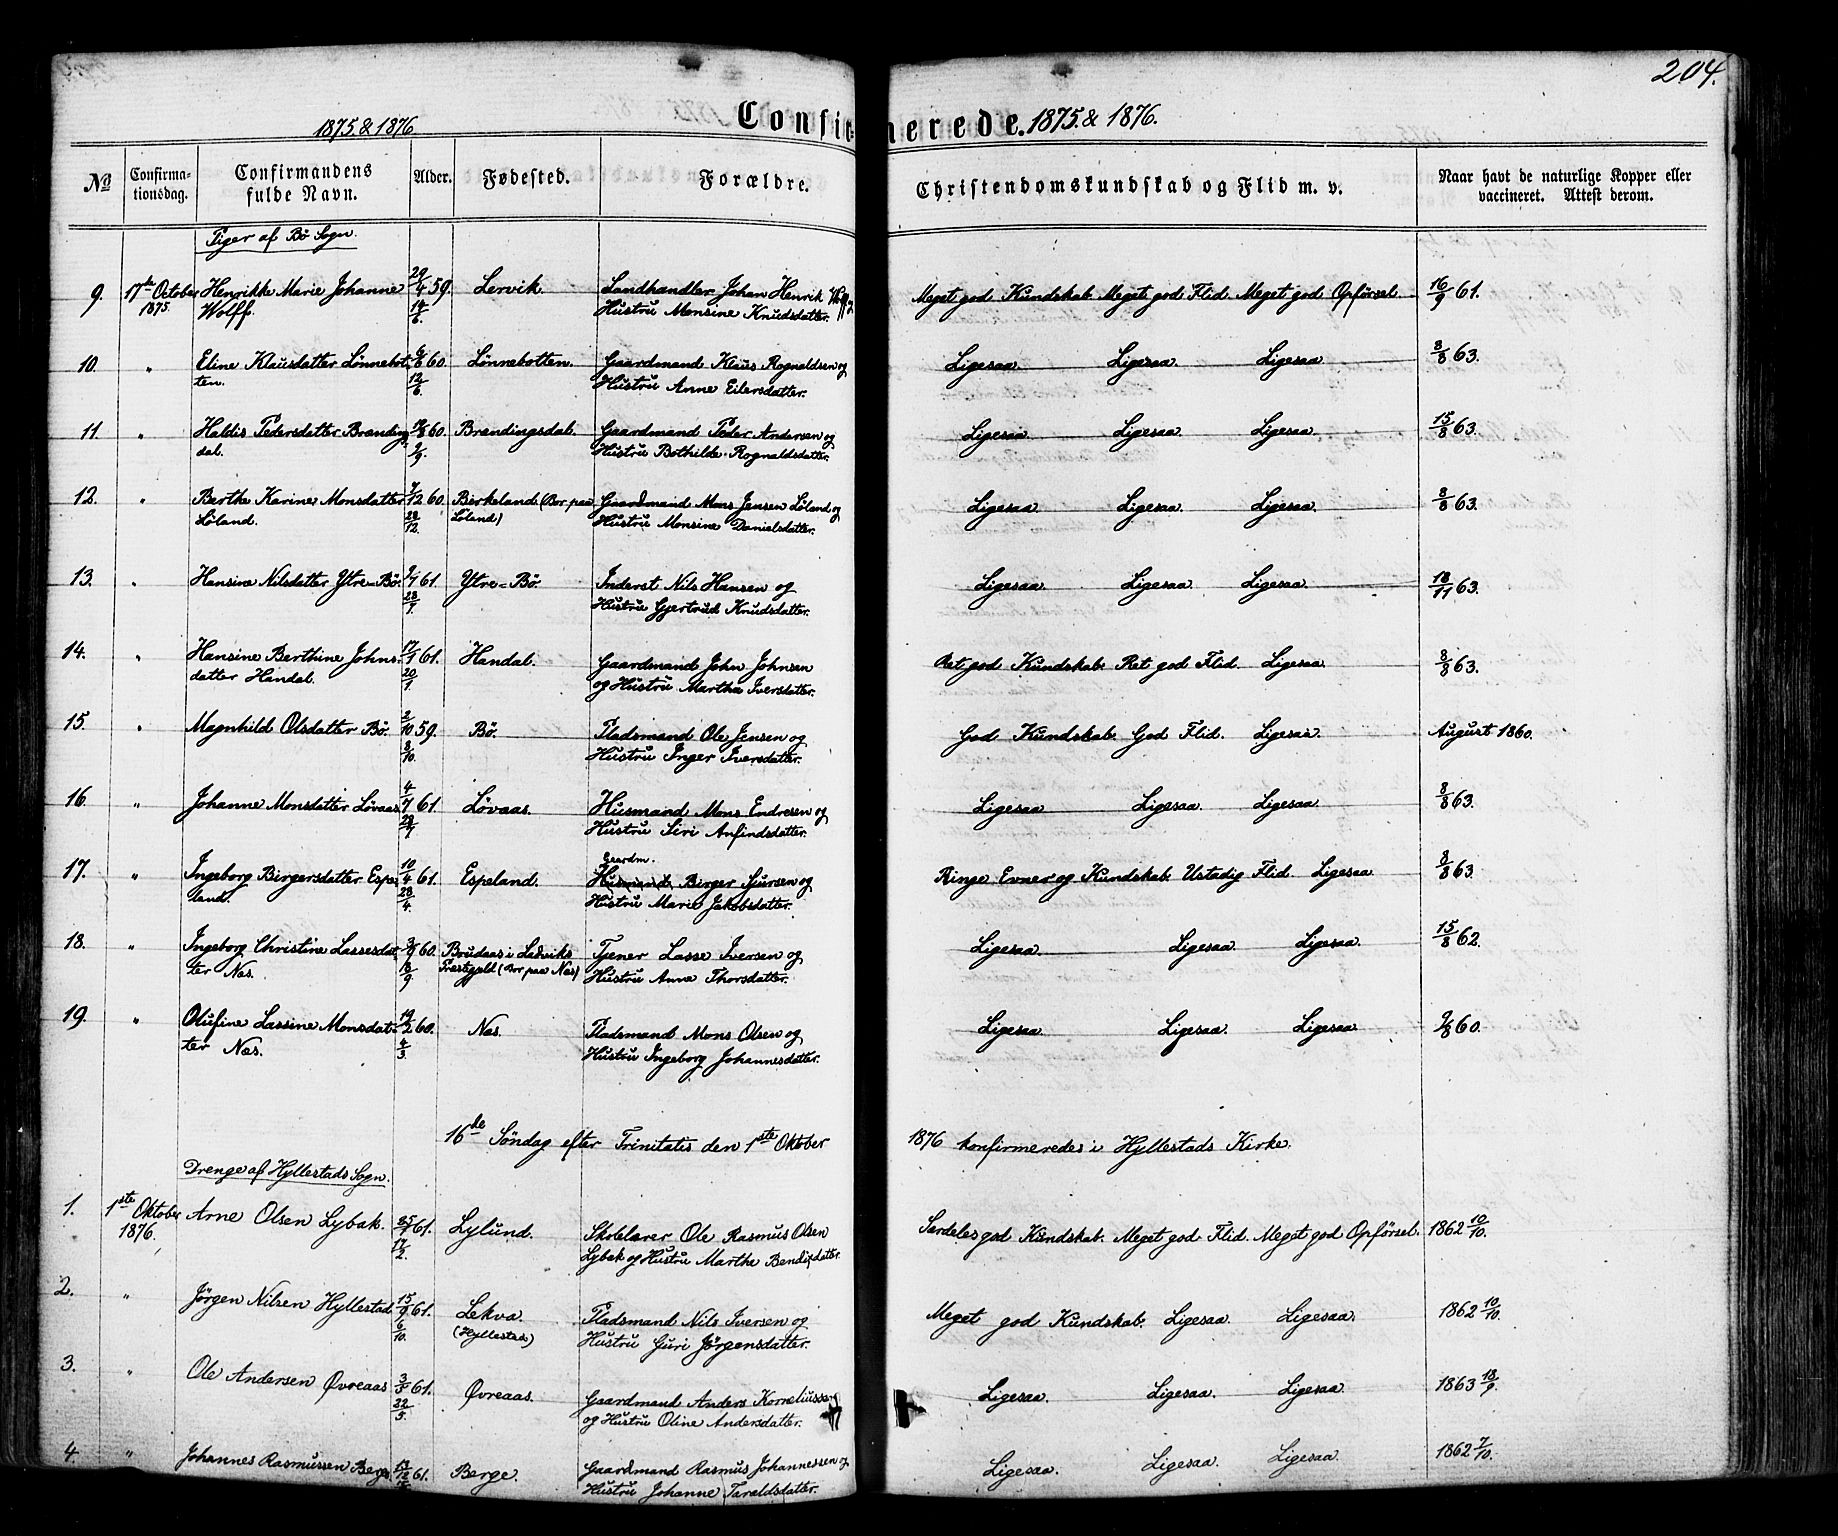 204.
1875 & 1876 Confirmerede. 1875. & 1876.
No Confirmationsdag. Confirmandens fulde Navn. Alder. Fødested. Forældre. Christendomskundskab og Flid m. v. Naar havt de naturlige Kopper eller vaccineret. Attest derom.
Piger af Bö Sogn.
9. 17de October Henrikke Marie Johanne 29/4 59. Lervik. Landhandler Johan Henrik Wolff og Meget god Kundskab. Meget god Flid. Meget god Opförsel. 16/9 61.
1875. Wolff. Hustru Monsine Knudsdatter.
10. " Eline Klausdatter Lönnebot- 60. Lönnebotten. Gaardmand Klaus Rognaldsen og Ligesaa. Ligesaa. Ligesaa. 8/8 63.
ten. 12/6. Hustru Anne Eilersdatter.
11 " Haldis Pedersdatter Brandings- 60. Brandingsdal. Gaardmand Peder Andersen og Ligesaa. Ligesaa. Ligesaa. 15/8 63.
dal. 2/9. Hustru Bothilde Rognaldsdatter.
12. " Berthe Karine Monsdatter 7/12 60. Birkeland (Bor paa Gaardmand Mons Jensen Løland og Ligesaa. Ligesaa. Ligesaa. 8/8 63.
Løland. 28/12. Løland) Hustru Monsine Danielsdatter.
13. " Hansine Nilsdatter Ytre-Bö. 61. Ytre-Bö. Inderst Nils Hansen og Ligesaa. Ligesaa. Ligesaa. 18/11 63.
Hustru Gjertrud Knudsdatter.
14. " Hansine Berthine Johns- 17/1 61. Handal. Gaardmand John Johnsen Ret god Kundskab. Ret god Flid. Ligesaa. 8/8 63.
datter Handal. og Hustru Martha Iversdatter.
15. " Magnhild Olsdatter Bö. 2/10 59. Bö. Pladsmand Ole Jensen og God Kundskab. God Flid. Ligesaa. August 1860.
8/10. Hustru Inger Iversdatter.
16. " Johanne Monsdatter Løvaas. 61. Løvaas. Husmand Mons Endresen og Ligesaa. Ligesaa. Ligesaa. 8/8 63.
Hustru Siri Anfindsdatter.
Gaardm.
17. " Ingeborg Birgersdatter Espe- 10/4 61. Espeland. Husmand Birger Sjursen og Ringe Evner og Kundskab. Ustadig Flid. Ligesaa. 8/8 63.
land. 28/4. Hustru Marie Jakobsdatter.
18. " Ingeborg Christine Lassesdat- 60. Brudaas i Ladviks Tjener Lasse Iversen og Ligesaa. Ligesaa. Ligesaa. 15/8 62.
ter Nes. Præstegjeld (Bor paa Nes) Hustru Anne Thorsdatter.
19. " Olufine Lassine Monsdat- 19/2 60. Nes. Pladsmand Mons Olsen og Ligesaa. Ligesaa. Ligesaa. 60.
ter Nes. 4/3. Hustru Ingeborg Johannesdatter.
16de Söndag efter Trinitatis den 1ste Oktober 1876 konfirmeredes i Hyllestads Kirke.
Drenge af Hyllestads Sogn.
1. 1ste Oktober Arne Olsen Lybak. 25/1 61. Lylund. Skolelærer Ole Rasmus Olsen Særdeles god Kundskab. Meget god Flid. Meget god Opførsel. 1862 10/10.
1876. 17/2. Lybak og Hustru Marthe Bendixdatter.
2. " Jörgen Nilsen Hyllestad. 15/9 61. Lekva. Pladsmand Nils Iversen og Meget god Kundskab. Ligesaa. Ligesaa. 1862 10/10.
6/10. (Hyllestad) Hustru Guri Jörgensdatter.
3. " Ole Andersen Øvreaas 3/5 61. Øvreaas. Gaardmand Anders Korneliussen Ligesaa. Ligesaa. Ligesaa. 1863 18/9.
22/5. og Hustru Oline Andersdatter.
4. " Johannes Rasmussen Berge 13/12 61. Berge. Gaardmand Rasmus Johannessen og Ligesaa. Ligesaa. Ligesaa. 1862 7/10.
Hustru Johanne Taraldsdatter.